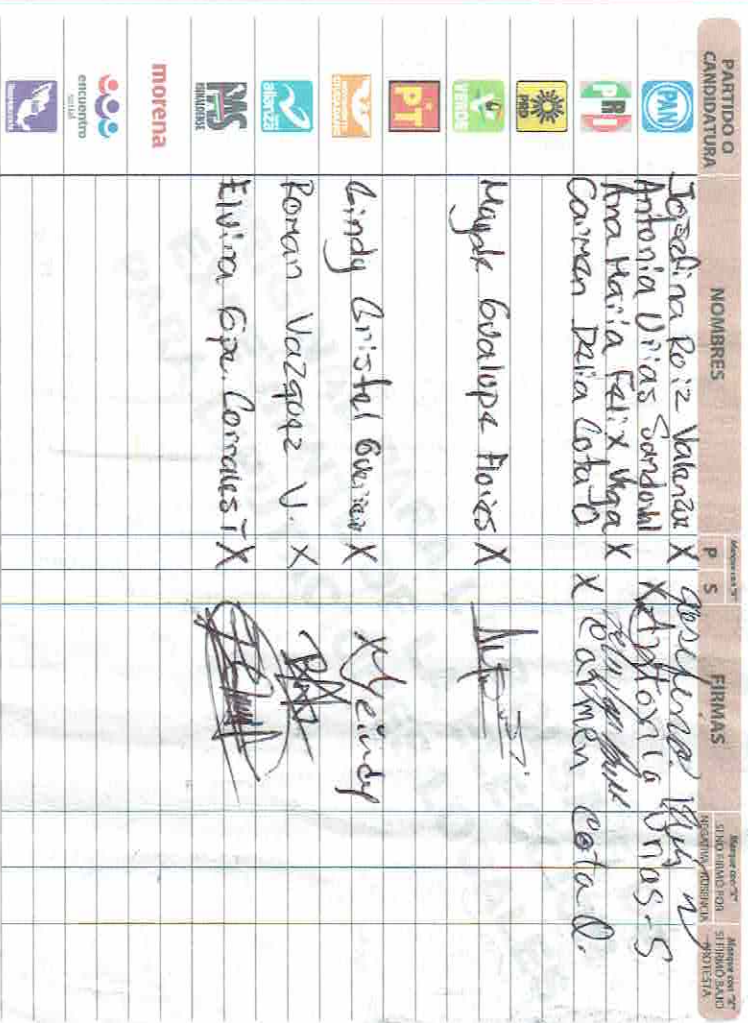 PARTIDO O CANDIDATURA NOMBRES Marque con "X" P S FIRMAS Marque con "X" SI NO FIRMÓ POR NEGATIVA AUSENCIA Marque con "X" SI FIRMÓ BAJO PROTESTA
PAN Josefina Roiz X Josefina
Antonia Urias Sandoval X Antonia Urias-S
PRI Ana Maria Felix Vega X
Carmen Delia Cota X Carmen Cota Q.
PRD
VERDE Flores X
PT
MOVIMIENTO CIUDADANO Cindy Cristel X Cindy
alianza Roman Vazquez V. X
PAS SINALOENSE Elvira Gpe. Corrales X
morena
encuentro social